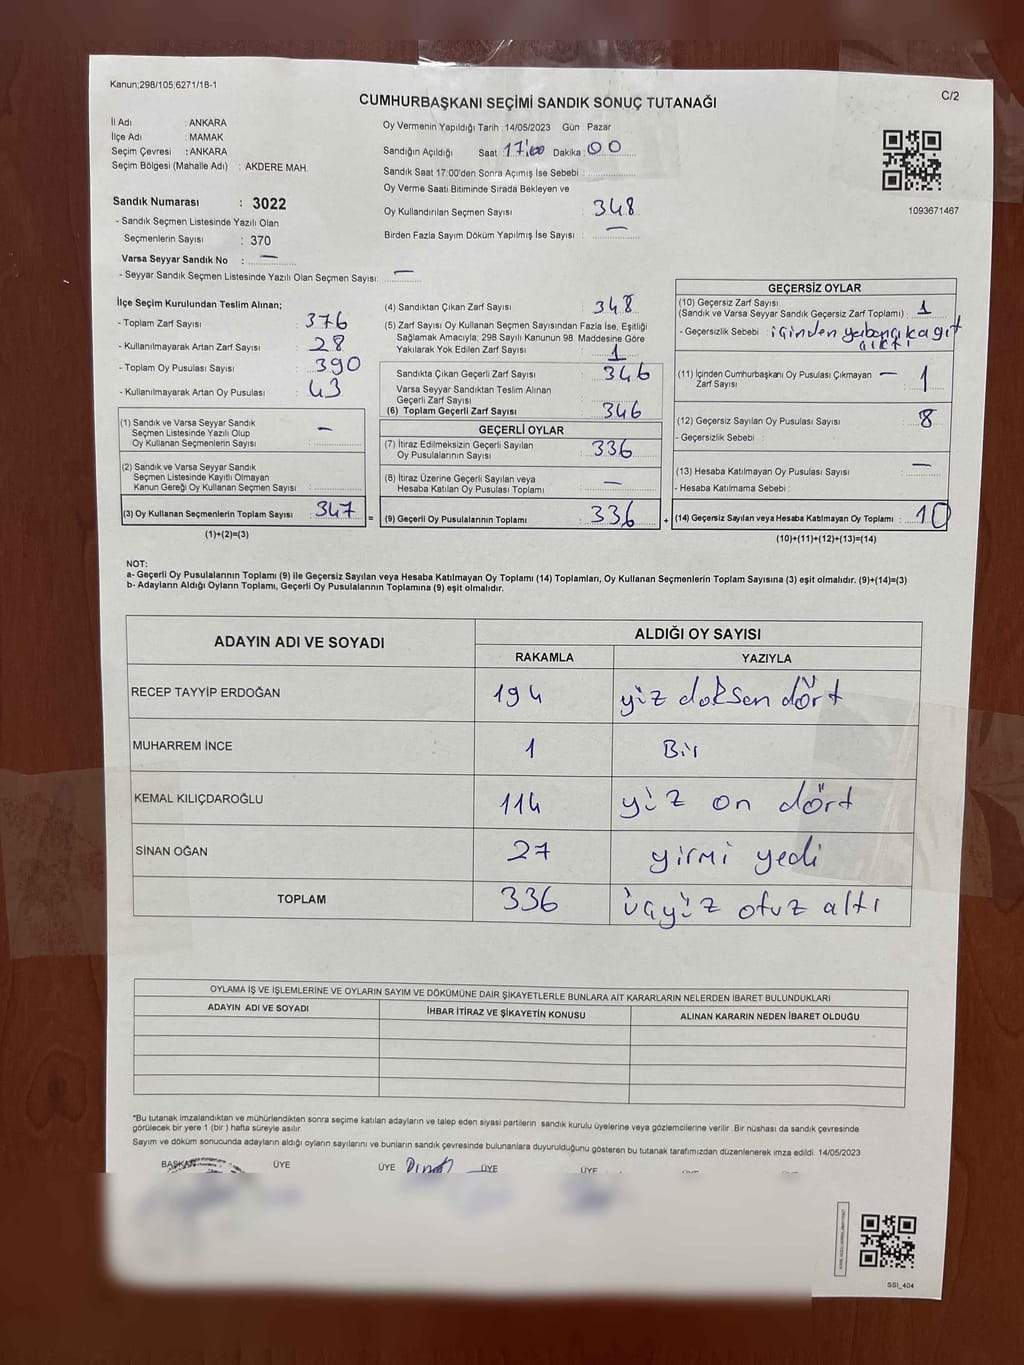 Kanun;298/105;6271/18-1
C/2
CUMHURBAŞKANI SEÇİMİ SANDIK SONUÇ TUTANAĞI
İl Adı : ANKARA
İlçe Adı : MAMAK
Seçim Çevresi : ANKARA
Seçim Bölgesi (Mahalle Adı) : AKDERE MAH.
Oy Vermenin Yapıldığı Tarih : 14/05/2023 Gün : Pazar
Sandığın Açıldığı Saat 17:00 Dakika : 00
Sandık Saat 17:00'den Sonra Açımış İse Sebebi :
Oy Verme Saati Bitiminde Sırada Bekleyen ve
Oy Kullandırılan Seçmen Sayısı : 348
Birden Fazla Sayım Döküm Yapılmış İse Sayısı : —
1093671467
Sandık Numarası : 3022
- Sandık Seçmen Listesinde Yazılı Olan
Seçmenlerin Sayısı : 370
Varsa Seyyar Sandık No : —
- Seyyar Sandık Seçmen Listesinde Yazılı Olan Seçmen Sayısı: —
İlçe Seçim Kurulundan Teslim Alınan;
- Toplam Zarf Sayısı : 376
- Kullanılmayarak Artan Zarf Sayısı : 28
- Toplam Oy Pusulası Sayısı : 390
- Kullanılmayarak Artan Oy Pusulası : 43
(1) Sandık ve Varsa Seyyar Sandık
Seçmen Listesinde Yazılı Olup
Oy Kullanan Seçmenlerin Sayısı : —
(2) Sandık ve Varsa Seyyar Sandık
Seçmen Listesinde Kayıtlı Olmayan
Kanun Gereği Oy Kullanan Seçmen Sayısı :
(3) Oy Kullanan Seçmenlerin Toplam Sayısı : 347 =
(1)+(2)=(3)
(4) Sandıktan Çıkan Zarf Sayısı : 348
(5) Zarf Sayısı Oy Kullanan Seçmen Sayısından Fazla İse, Eşitliği
Sağlamak Amacıyla; 298 Sayılı Kanunun 98. Maddesine Göre
Yakılarak Yok Edilen Zarf Sayısı : 1
Sandıkta Çıkan Geçerli Zarf Sayısı : 346
Varsa Seyyar Sandıktan Teslim Alınan
Geçerli Zarf Sayısı :
(6) Toplam Geçerli Zarf Sayısı : 346
GEÇERLİ OYLAR
(7) İtiraz Edilmeksizin Geçerli Sayılan
Oy Pusulalarının Sayısı : 336
(8) İtiraz Üzerine Geçerli Sayılan veya
Hesaba Katılan Oy Pusulası Toplamı : —
(9) Geçerli Oy Pusulalarının Toplamı : 336 +
GEÇERSİZ OYLAR
(10) Geçersiz Zarf Sayısı
(Sandık ve Varsa Seyyar Sandık Geçersiz Zarf Toplamı) : 1
- Geçersizlik Sebebi : içinden yabancı kağıt
çıktı
(11) İçinden Cumhurbaşkanı Oy Pusulası Çıkmayan — 1
Zarf Sayısı
(12) Geçersiz Sayılan Oy Pusulası Sayısı : 8
- Geçersizlik Sebebi :
(13) Hesaba Katılmayan Oy Pusulası Sayısı : —
- Hesaba Katılmama Sebebi :
(14) Geçersiz Sayılan veya Hesaba Katılmayan Oy Toplamı : 10
(10)+(11)+(12)+(13)=(14)
NOT:
a- Geçerli Oy Pusulalarının Toplamı (9) ile Geçersiz Sayılan veya Hesaba Katılmayan Oy Toplamı (14) Toplamları, Oy Kullanan Seçmenlerin Toplam Sayısına (3) eşit olmalıdır. (9)+(14)=(3)
b- Adayların Aldığı Oyların Toplamı, Geçerli Oy Pusulalarının Toplamına (9) eşit olmalıdır.
ADAYIN ADI VE SOYADI
ALDIĞI OY SAYISI
RAKAMLA YAZIYLA
RECEP TAYYİP ERDOĞAN 194 yüz doksan dört
MUHARREM İNCE 1 Bir
KEMAL KILIÇDAROĞLU 114 yüz on dört
SİNAN OĞAN 27 yirmi yedi
TOPLAM 336 üçyüz otuz altı
OYLAMA İŞ VE İŞLEMLERİNE VE OYLARIN SAYIM VE DÖKÜMÜNE DAİR ŞİKAYETLERLE BUNLARA AİT KARARLARIN NELERDEN İBARET BULUNDUKLARI
ADAYIN ADI VE SOYADI İHBAR İTİRAZ VE ŞİKAYETİN KONUSU ALINAN KARARIN NEDEN İBARET OLDUĞU
*Bu tutanak imzalandıktan ve mühürlendikten sonra seçime katılan adayların ve talep eden siyasi partilerin sandık kurulu üyelerine veya gözlemcilerine verilir. Bir nüshası da sandık çevresinde
görülecek bir yere 1 (bir ) hafta süreyle asılır.
Sayım ve döküm sonucunda adayların aldığı oyların sayılarını ve bunların sandık çevresinde bulunanlara duyurulduğunu gösteren bu tutanak tarafımızdan düzenlenerek imza edildi. 14/05/2023
BAŞKAN ÜYE ÜYE ÜYE ÜYE
SSİ_404